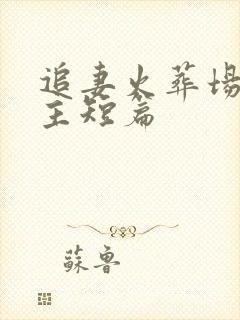 追妻火葬場
主短篇
蘇魯